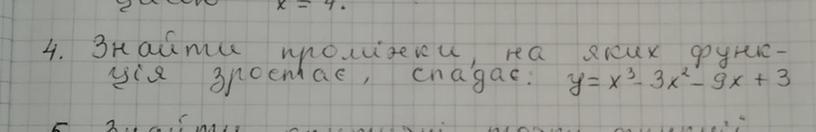 x = 4.
4. Знайти проміжки, на яких функ-
ція зростає, спадає: y = x³ - 3x² - 9x + 3
5. Знайти